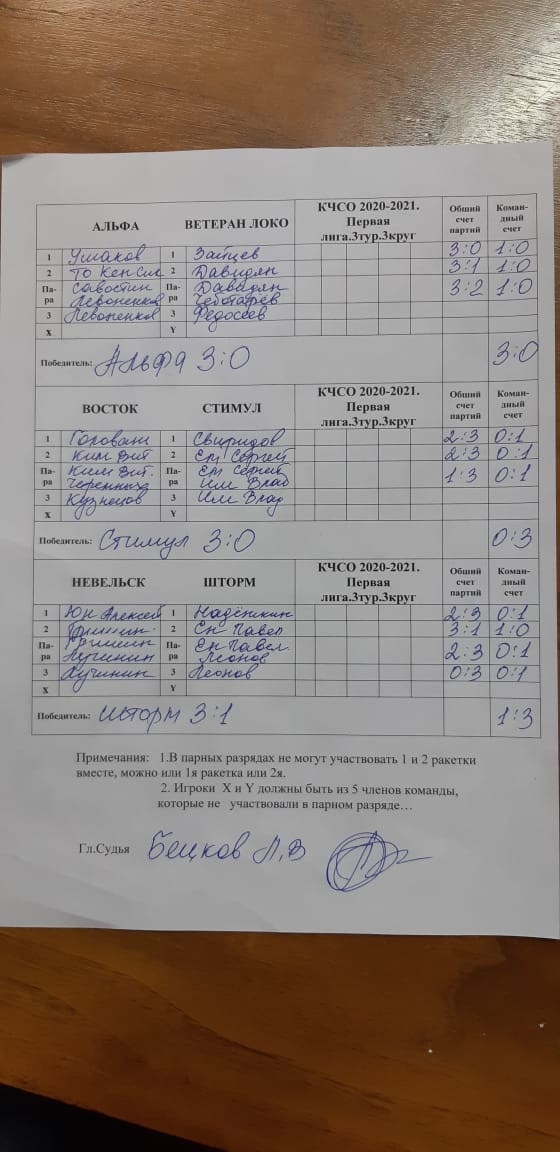 АЛЬФА ВЕТЕРАН ЛОКО КЧСО 2020-2021. Первая лига.3тур.3круг Общий счет партий Коман-дный счет
1 Ушаков 1 Зайцев 3:0 1:0
2 То Кен Сик 2 Давидян 3:1 1:0
Па-ра Савостин Па-ра Давидян 3:2 1:0
Левоненков Чеботарёв
3 Левоненков 3 Федосеев
X Y
Победитель: Альфа 3:0 3:0
ВОСТОК СТИМУЛ КЧСО 2020-2021. Первая лига.3тур.3круг Общий счет партий Коман-дный счет
1 1 Свиридов 2:3 0:1
2 Ким Вит 2 Ем Сергей 2:3 0:1
Па-ра Ким Вит. Па-ра Ем Сергей 1:3 0:1
Им Влад
3 Кузнецов 3 Им Влад
X Y
Победитель: Стимул 3:0 0:3
НЕВЕЛЬСК ШТОРМ КЧСО 2020-2021. Первая лига.3тур.3круг Общий счет партий Коман-дный счет
1 Юн Алексей 1 Надёжкин 2:3 0:1
2 Гришин 2 Ен Павел 3:1 1:0
Па-ра Гришин Па-ра Ен Павел 2:3 0:1
Лучинин Леонов
3 Лучинин 3 Леонов 0:3 0:1
X Y
Победитель: Шторм 3:1 1:3
Примечания: 1.В парных разрядах не могут участвовать 1 и 2 ракетки
вместе, можно или 1я ракетка или 2я.
2. Игроки X и Y должны быть из 5 членов команды,
которые не участвовали в парном разряде…
Гл.Судья Бецков Л.В